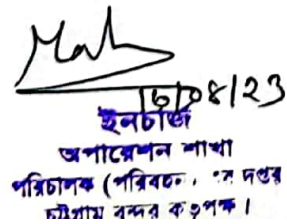 16/08/23
ইনচার্জ
অপারেশন শাখা
পরিচালক (পরিবহন) দপ্তর
চট্টগ্রাম বন্দর কর্তৃপক্ষ।